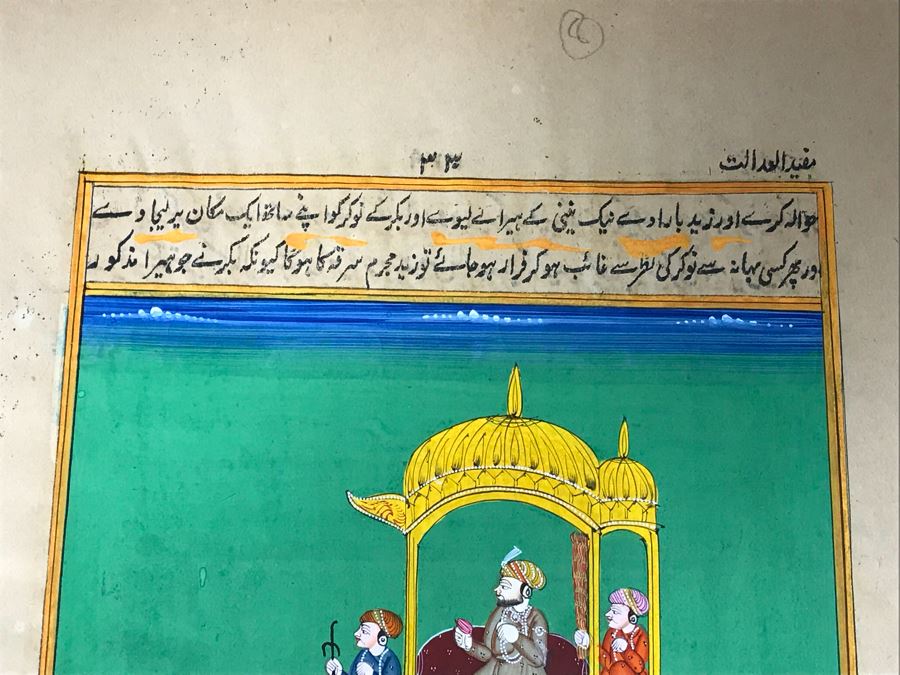 مفید العدالت
۳۳
حوالہ کرے اور زید بارادے نیک نیتی کے ہیرا لے لیوے اور بکر کے نوکر کو اپنے ساتھ ایک مکان پر لیجاوے
اور پھر کسی بہانہ سے نوکر کی نظر سے غائب ہو کر فرار ہو جائے تو زید مجرم سرقہ کا ہو گا کیونکہ بکر نے جو ہیرا مذکور